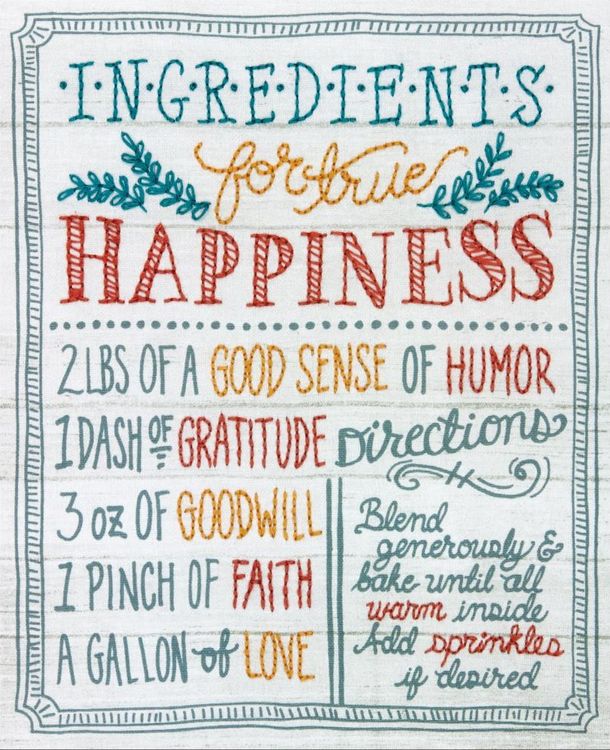 ·I·N·G·R·E·D·I·E·N·T·S·
for true
HAPPINESS
2 LBS OF A GOOD SENSE OF HUMOR
1 DASH OF GRATITUDE
3 oz OF GOODWILL
1 PINCH OF FAITH
A GALLON of LOVE
Directions
Blend
generously &
bake until all
warm inside
Add sprinkles
if desired